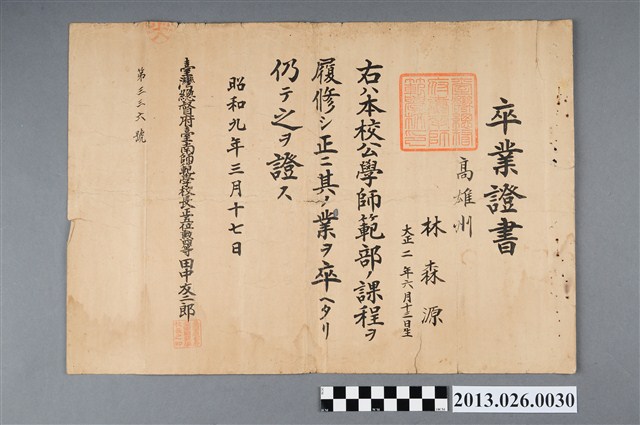 卒業證書
高雄州
林森源
大正二年六月十二日生
右ハ本校公學師範部ノ課程ヲ
履修シ正ニ其ノ業ヲ卒ヘタリ
仍テ之ヲ證ス
昭和九年三月十七日
臺灣總督府臺南師範學校長正五位勲四等田中友二郎
第三三六號
2013.026.0030